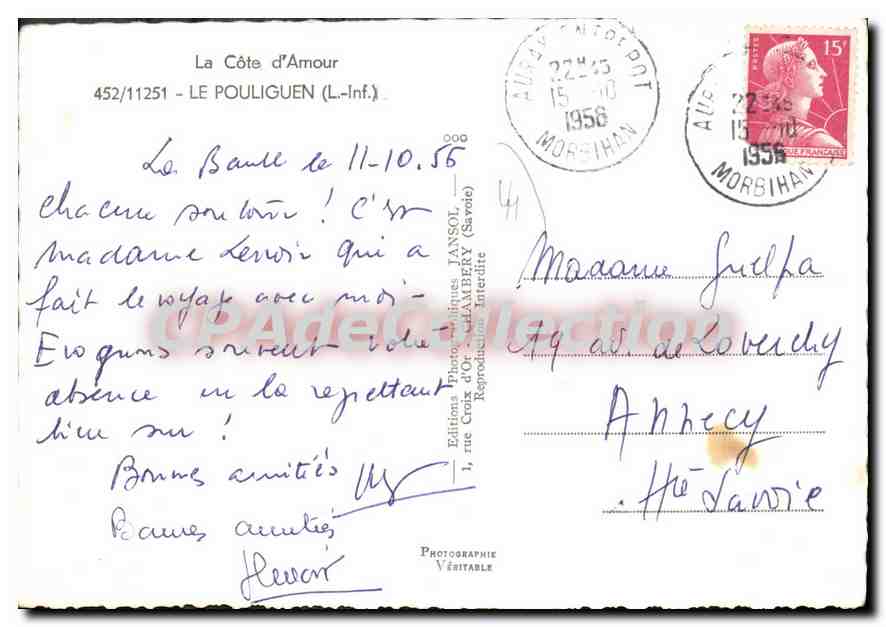 La Côte d'Amour
452/11251 - LE POULIGUEN (L.-Inf.)
La Baule le 11-10.56
chacune son tour ! C'est
madame Lenoir qui a
fait le voyage avec moi -
Evoquons souvent votre
absence en la regrettant
bien sur !
Bonnes amitiés
Bonnes amitiés
Lenoir
Editions Photographiques JANSOL,
1, rue Croix d'Or - CHAMBERY (Savoie)
Reproduction Interdite
PHOTOGRAPHIE
VÉRITABLE
AURAY ENTREPOT
22H45
15 -10
1956
MORBIHAN
AURAY
22H45
15 -10
1956
MORBIHAN
POSTES
15F
RÉPUBLIQUE FRANÇAISE
Madame Guelpa
49 av. de Loverchy
Annecy
Hte Savoie
CPAdeCollection